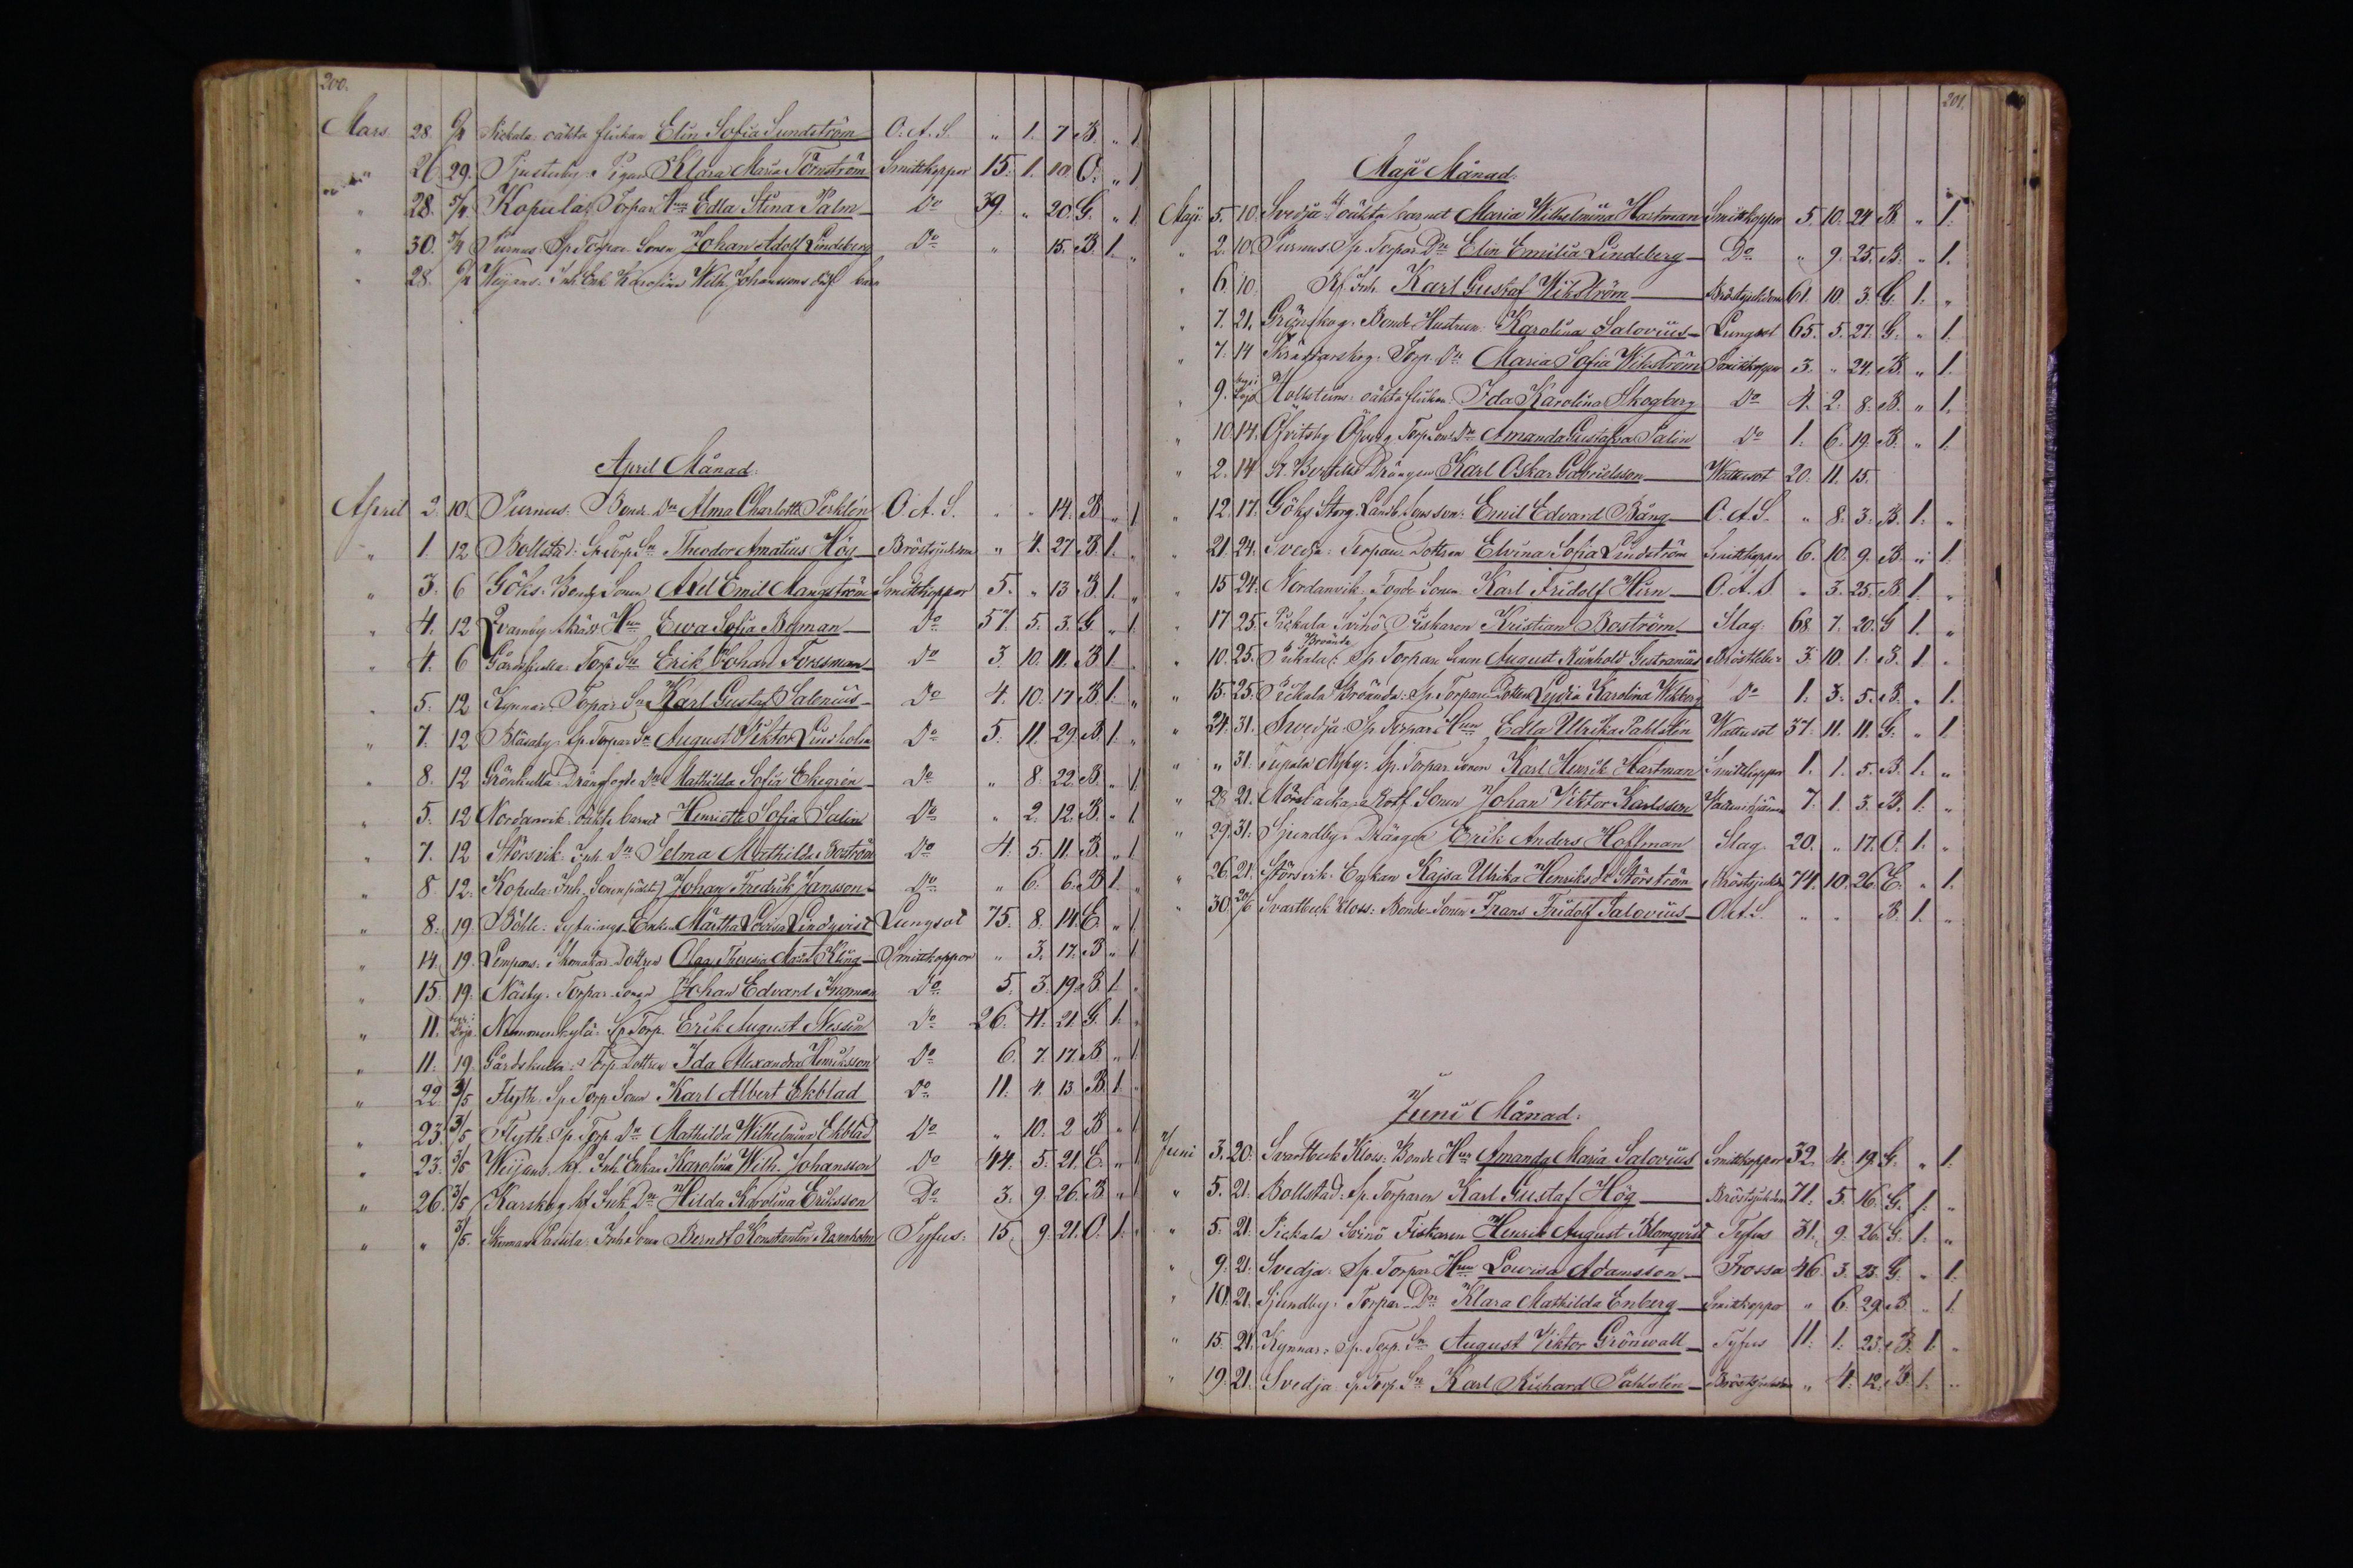 200.
Mars 28. 6/4 Pickala oäkta flickan Elin Sofia Sundström O. A. S. " 1. 7 B. " 1
" 26. 29. Pigan Klara Maria Törnström Smittkoppor 15. 1. 10. O. " 1
" 28. 5/4 Kopula: Torpar Hun Edla Stina Palm D:o 39. " 20. G. " 1.
" 30. 5/4 Purnus Sp. Torpar Sonen Johan Adolf Lindeberg D:o " 15. B. 1. "
" 28. Weijans. Inh. Enk Karolina Wilh. Johanssons barn
April Månad.
April 2. 10. Purnus. Bond. Dn Alma Charlotta Perklén O. A. S. " " 14. B " 1
" 1. 12 Bollstad: Sp. Torp. Sn Theodor Amatius Hög Bröstsjukdom " 4. 27 B. 1. "
" 3. 6 Göhs. Bonde Sonen Axel Emil Mangström Smittkoppor 5. " 13 B. 1. "
" 4. 12 Qvarnby Hun Ewa Sofia Boman D:o 57. 5. 3. G " 1.
" 4. 6 Torp. Sn Erik Johan Forssman D:o 3. 10. 11. B 1. "
" 5. 12 Kynnar. Torpar Sn Karl Gustaf Salenius D:o 4. 10. 17 B 1. "
" 7. 12 Blåsaby. Sp. Torpar Sn August Viktor Lindholm D:o 5. 11. 29. B 1. "
" 8. 12 Grönkulla Drängfogde Dn Mathilda Sofia Ekegrén D:o " 8. 22. B. " 1.
" 5. 12 Nordanvik. oäkta barnet Henrietta Sofia Salin D:o " 2. 12. B. " 1.
" 7. 12 Störsvik. Inh. Dn Selma Mathilda Boström D:o 4. 5. 11. B. " 1.
" 8. 12. Kopula: Inh. Sonen Johan Fredrik Jansson D:o " 6. 6. B 1. "
" 8. 19. Böhle: Sytnings-Enkan Märtha Lovisa Lindqvist Lungsot 75. 8. 14. E. " 1.
" 14. 19. Lempans. Skomakar Dottren Olga Theresia Maria Kling Smittkoppor " 3. 17. B " 1
" 15. 19. Näsby. Torpar Sonen Johan Edvard Ingman D:o 5. 3. 19. B. 1. "
" 11. begr. i Lojo. Nummenkylä: Sp Torp. Erik August Nessin D:o 26. 11. 21. G. 1. "
" 11. 19 Gårdskulla: Torp. Dottren Ida Alexandra Henriksson D:o 6. 7. 17. B " 1.
" 22. 3/5 Flyth. Sp. Torp. Sonen Karl Albert Ekblad D:o 11. 4. 13. B. 1. "
" 23. 3/5 Flyth. Sp. Torp. Dn Mathilda Wilhelmina Ekblad D:o " 10. 2 B " 1
" 23. 3/5 Weijans. Inh. Enkan Karolina Wilh. Johansson D:o 44. 5. 21. E. " 1
" 26. 3/5 Karskog Inh. Dn Hilda Karolina Eriksson D:o 3. 9. 26. B. " 1
" " 3/5. Inh. Sonen Berndt Konstantin Ravnholm Tyfus. 15. 9. 21. O. 1. "
201.
Maji Månad.
Maji. 5. 10. Svedja oäkta barnet Maria Wilhelmina Hartman Smittkoppor 5. 10. 24. B. " 1.
" 2. 10. Purnus. Sp. Torpar Dn Elin Emilia Lindeberg D:o " 9. 25. B. " 1.
" 6. 10. Inh. Karl Gustaf Wikström Bröstsjukdom 61. 10. 3. G. 1. "
" 7. 21. Grönskog. Bonde Hustrun. Karolina Salovius Lungsot 65. 5. 27. G. " 1.
" 7. 14 Skräddarskog. Torp. Dn Maria Sofia Wikström Smittkoppor 3. " 24. B. " 1.
" 9. begr. i Lojo Hollstens. oäkta flickan Ida Karolina Skogberg D:o 4. 2. 8. B. " 1.
" 10. 14. Öfvitsby Torp. Dn Amanda Gustafva Salin D:o 1. 6. 19. B. " 1.
" 2. 14 Drängen Karl Oskar Gabrielsson Wattusot 20. 11. 15.
" 12. 17. Göhs Storg. Emil Edvard Bäng O. A. S. " 8. 3. B. 1. "
" 21. 24. Svedja: Torpare Dottren Elvina Sofia Lindström Smittkoppor 6. 10. 9. B. " 1.
" 15 24. Nordanvik. Fogde Sonen Karl Fridolf Hirn O. A. S. " 3. 25. B 1. "
" 17 25. Pickala Svinö Fiskaren Kristian Boström Slag. 68 7. 20. G 1. "
" 10. 25. Pickala Broända Sp. Torpare Sonen August Reinhold Gestranius Bröstfeber 3. 10. 1. B. 1. "
" 15. 25. Pickala Broända: Sp. Torpare Dottren Lydia Karolina Wikberg D:o 1. 3. 5. B. " 1.
" 24. 31. Svedja Sp. Torpare Hun Edla Ulrika Pahlstén Wattusot 37. 11. 11. G. " 1
" " 31. Sp. Torpar Sonen Karl Henrik Hartman Smittkoppor 1. 1. 5. B. 1. "
" 28 21. Mörsbacka Sonen Johan Viktor Karlsson 7. 1. 3. B. 1. "
" 29. 31. Sjundby. Drängen Erik Anders Hoffman Slag. 20. " 17. O. 1. "
" 26. 21. Störsvik. Enkan Kajsa Ulrika Henriksdr Störström Bröstsjukdm 74. 10. 26. E. " 1.
" 30. 20/6 Svartbeck Kloss: Bonde-Sonen Frans Fridolf Salovius O. A. S. " " B. 1. "
Juni Månad.
Juni 3. 20. Svartbeck Kloss: Bonde Hun Amanda Maria Salovius Smittkoppor 32. 4. 19. G. " 1.
" 5. 21. Bollstad: Sp. Torparen Karl Gustaf Hög Bröstsjukdm 71. 5. 16. G. 1. "
" 5. 21. Pickala Svinö Fiskaren Henrik August Blomqvist Tyfus 31. 9. 26. G. 1. "
" 9. 21. Svedja: Sp. Torpar Hun Lowisa Adamsson Frossa 46. 3. 25. G. " 1.
" 10. 21. Sjundby: Torpar-Dn Klara Mathilda Enberg Smittkoppor " 6. 29. B. " 1.
" 15. 21. Kynnar: Sp. Torp. Sn August Viktor Grönwall Tyfus 11. 1. 23. B. 1. "
" 19. 21. Svedja Sp. Torp. Sn Karl Richard Pahlstén Bröstsjukdm " 4. 12. B. 1. "